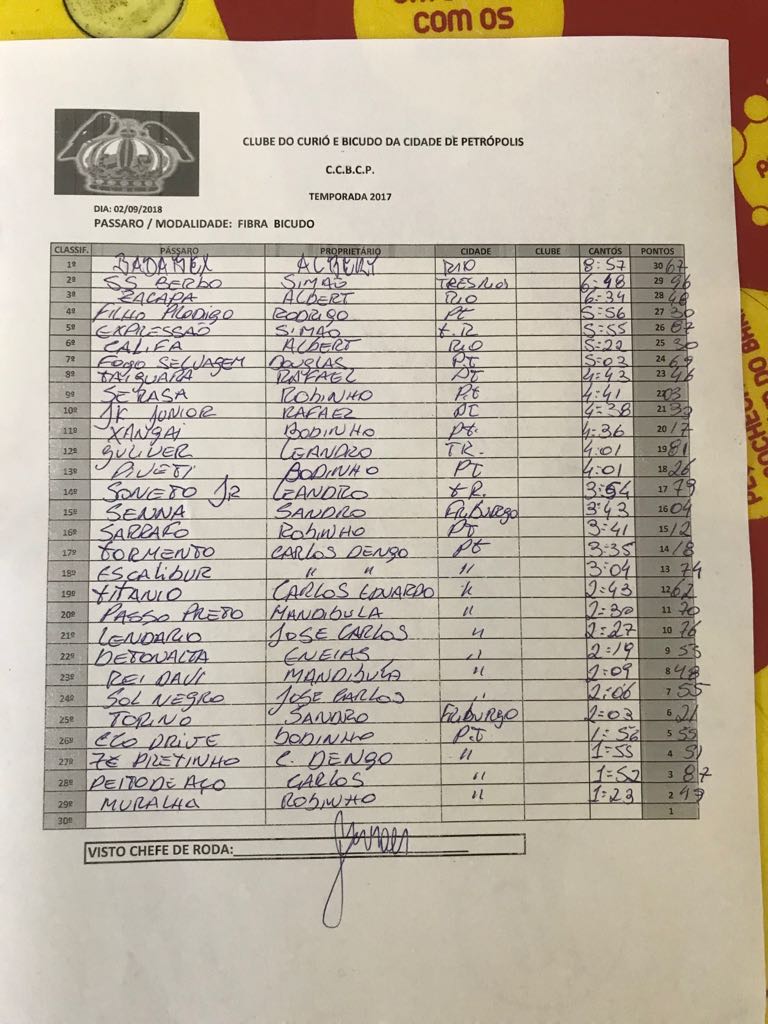 COM OS
CLUBE DO CURIÓ E BICUDO DA CIDADE DE PETRÓPOLIS
C.C.B.C.P.
TEMPORADA 2017
DIA: 02/09/2018
PASSARO / MODALIDADE: FIBRA BICUDO
CLASSIF. PÁSSARO PROPRIETÁRIO CIDADE CLUBE CANTOS PONTOS
1º RIO 8:57 30 67
2º SS BERBO SIMÃO TRES RIOS 6:48 29 96
3º ZACAPA ALBERT RIO 6:34 28 48
4º FILHO PRODIGO RODRIGO Pt 5:56 27 30
5º EXPRESSÃO SIMÃO t.R 5:55 26 87
6º CALIFA ALBERT RIO 5:22 25 30
7º SELVAGEM DOUGLAS Pt 5:03 24 69
8º TAIGUARA RAFAEL Pt 4:43 23 46
9º SERASA RODINHO P.t 4:41 22 03
10º JK JUNIOR RAFAEL Pt 4:38 21
11º XANGAI BODINHO Pt. 4:36 20 17
12º GULIVER LEANDRO TR. 4:01 19 81
13º BODINHO PT 4:01 18 26
14º SONETO JR LEANDRO t R. 3:54 17 79
15º SENNA SANDRO FRIBURGO 3:43 16 04
16º SARRAFO RODINHO Pt 3:41 15 12
17º TORMENTO CARLOS DENGO Pt 3:35 14 18
18º ESCALIBUR " " " 3:04 13 74
19º TITANIO CARLOS EDUARDO 2:43 12 62
20º PASSO PRETO MANDIBULA " 2:30 11 70
21º LENDARIO JOSE CARLOS " 2:27 10 76
22º DETONALTA ENEIAS " 2:19 9 55
23º REI DAVI MANDIBULA " 2:09 8 48
24º SOL NEGRO JOSE CARLOS " 2:06 7 55
25º TORINO SANDRO FRIBURGO 2:03 6 21
26º DRIVE BODINHO P.t 1:56 5 55
27º ZE PRETINHO C. DENGO " 1:55 4 51
28º PEITO DE AÇO CARLOS " 1:52 3 87
29º MURALHA RODINHO " 1:23 2 49
30º 1
VISTO CHEFE DE RODA: